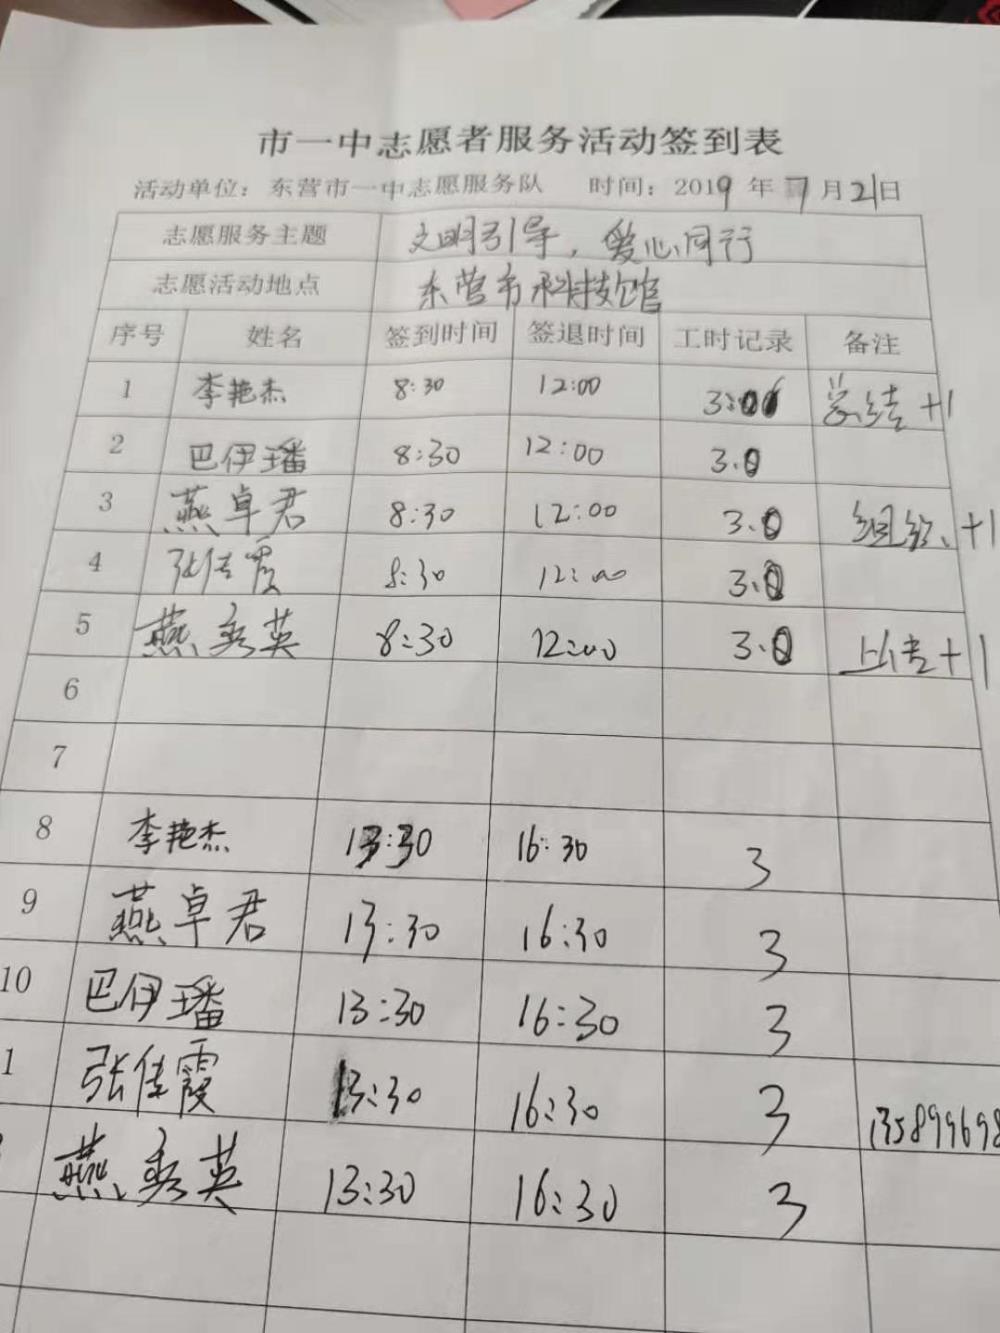 市一中志愿者服务活动签到表
活动单位：东营市一中志愿服务队 时间：2019年7月21日
志愿服务主题 文明引导，爱心同行
志愿活动地点 东营市科技馆
序号 姓名 签到时间 签退时间 工时记录 备注
1 李艳杰 8:30 12:00 总结+1
2 巴伊璠 8:30 12:00 3.0
3 燕卓君 8:30 12:00 3.0 组织+1
4 张佳霞 8:30 12:00 3.0
5 燕秀英 8:30 12:00 3.0 上传+1
6
7
8 李艳杰 13:30 16:30 3
9 燕卓君 13:30 16:30 3
10 巴伊璠 13:30 16:30 3
1 张佳霞 13:30 16:30 3 135899698
燕秀英 13:30 16:30 3